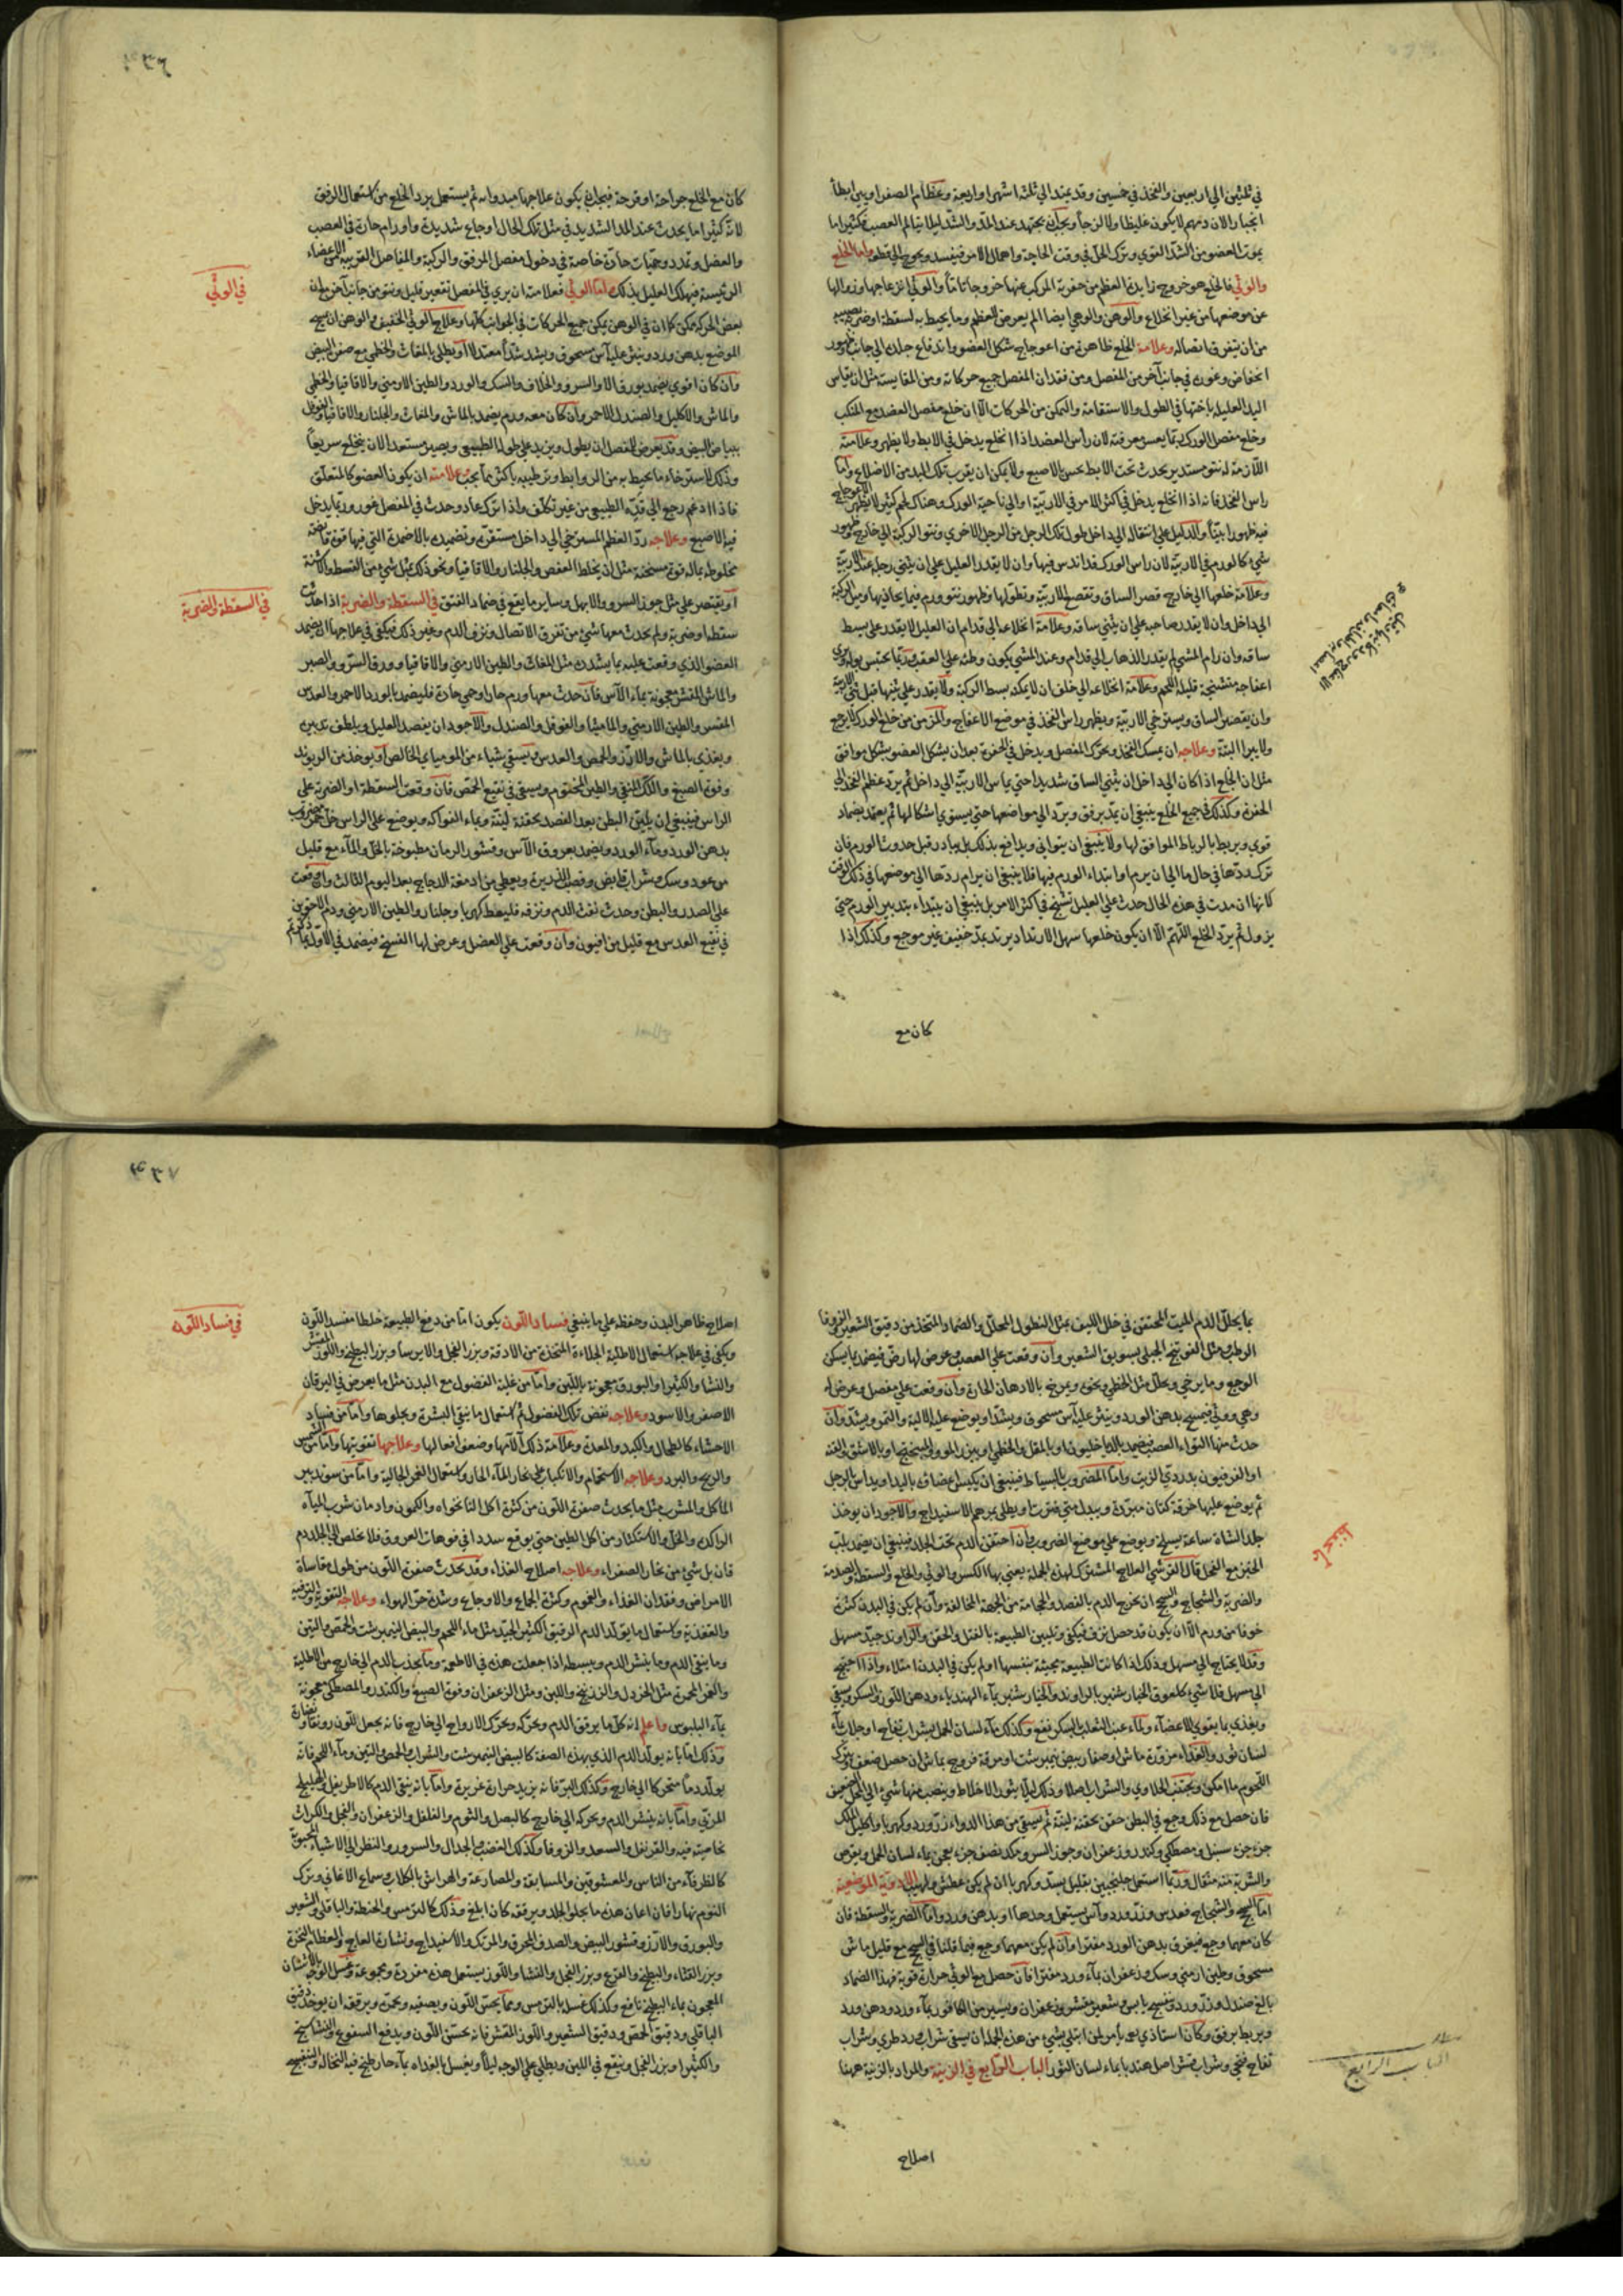 في ثلثين الي اربعين والفخذ في خمسين وقد يمتد الي ثلثة اشهر او اربعة وعظام الصفراويين ابطأ
انجبارا لان دمهم لا يكون غليظا ولا لزجا ويجب ان يجتهد عند المد والشد ليلا يتالم العصب فكثيرا ما
يموت العضو من الشد القوي وترك الحل في وقت الحاجة واهمال الامر فيفسد ويحوج الي قطعه واما الخلع
والوثي فالخلع هو خروج زايدة العظم من حفرته المركب عنها خروجا تاما والوثي انزعاجها وزوالها
عن موضعها من غير انخلاع والوهن والوهي ايضا الم يعرض للعظم وما يحيط به لسقطة او ضربة
من ان يتفرق اتصاله وعلامة الخلع ظاهرة من اعوجاج شكل العضو واندفاع جلده الي جانب
انخفاض وغور في جانب آخر من المفصل ومن فقدان المفصل جميع حركاته ومن المقايسة مثل ان يقاس
اليد العليلة باختها في الطول والاستقامة والتمكن من الحركات الا ان خلع مفصل العضد مع المنكب
وخلع مفصل الورك ربما يعسر معرفته لان راس العضد اذا انخلع يدخل في الابط ولا يظهر وعلامته
اللازمة له نتو مستدير يحدث تحت الابط يحس بالاصبع ولا يمكن ان يقرب تلك اليد من الاضلاع واما
راس الفخذ فانه اذا انخلع يدخل في اكثر الامر في الاربية او الي ناحية الورك وهناك لحم كثير لا يظهر الاعوجاج
فيه ظهورا بينا والدليل علي انتقاله الي داخل طول تلك الرجل من الرجل الاخري ونتو الركبة الي خارج وظهور
شيء كالورم في الاربية لان راس الورك قد اندس فيها وان لا يقدر العليل علي ان يثني رجله عند الاربية
وعلامة خلعها الي خارج قصر الساق وتقصع الاربية وظهور نتو وورم فيما يحاذيها وميل الركبة
الي داخل وان لا يقدر صاحبه علي ان يثني ساقه وعلامة انخلاعه الي قدام ان العليل لا يقدر علي بسط
ساقه وان رام المشي لم يقدر الذهاب الي قدام وعند المشي يكون وطئه علي العقب وربما يحتبس بوله
متشنجة قليلة اللحم وعلامة انخلاعه الي خلف ان لا يمكنه بسط الركبة ولا يقدر علي ثنيها قبل ثني الاربية
وان يقصر الساق ويسترخي الاربية ويظهر راس الفخذ في موضع الاعفاج والمزمن من خلع الورك لا يرجع
ولا يبرا البتة وعلاجه ان يمسك الفخذ ويحرك المفصل ويدخل في الحفرة بعد ان يشكل العضو بشكل موافق
مثل ان الخلع اذا كان الي داخل ان يثني الساق شديدا حتي يماس الاربية الي داخل ثم يرد عظم الفخذ الي
الحفرة وكذلك في جميع الخلع ينبغي ان يمد برفق ويرد الي مواضعها حتي يستوي اشكالها ثم يضمد بضماد
قوي ويربط بالرباط الموافق لها ولا ينبغي ان يتواني ويدافع بذلك بل يبادر قبل حدوث الورم فان
ترك ردها في حال ما الي ان يرم او ابتداء الورم فيها فلا ينبغي ان يرام ردها الي موضعها في ذلك الوقت
لانها ان مدت في هذه الحال حدث علي العليل تشنج في اكثر الامر بل ينبغي ان يبتداء بتدبير الورم حتي
يزول ثم يرد الخلع اللهم الا ان يكون خلعها سهل الارتداد يرتد بمد خفيف غير موجع وكذلك اذا
كان مع
كان مع الخلع جراحة او قرحة فيجب ان يكون علاجها مبدوا به ثم يستعمل برد الخلع من استعمال الرفق
لانه كثيرا ما يحدث عند المد الشديد في مثل تلك الحال اوجاع شديدة واورام حارة في العصب
والعضل وتمدد وحميات حارة خاصة في دخول مفصل المرفق والركبة والمفاصل القريبة من الاعضاء
الرئيسة فيهلك العليل بذلك واما الوثي فعلامته ان يري في المفصل تقعير قليل ونتو من جانب آخر مع ان
بعض الحركة ممكن كما ان في الوهن يمكن جميع الحركات في الجوانب كلها وعلاج الوثي الخفيف والوهن ان يمسح
الموضع بدهن ورد وينثر عليه آس مسحوق ويشد شدا معتدلا او يطلي بالمغاث والخطمي مع صفرة البيض
وان كان اقوي يضمد بورق الاثل والسرو والخلاف والسك والورد والطين الارمني والاقاقيا والخطمي
والماش والاكليل والصندل الاحمر وان كان معه ورم يضمد بالماش والمغاث والجلنار والاقاقيا والفوفل
ببياض البيض وقد يعرض للمفصل ان يطول ويزيد علي طوله الطبيعي ويصير مستعدا لان ينخلع سريعا
وذلك لاسترخاء ما يحيط به من الروابط وترطيبه باكثر مما يجب وعلامته ان يكون العضو كالمتعلق
فاذا ادغم رجع الي قده الطبيعي من غير تكلف واذا ترك عاد وحدث في المفصل غور وربما يدخل
فيه الاصبع وعلاجه رد العظم المسترخي الي داخل مستقره وتضميده بالاضمدة التي فيها قوة قابضة
مخلوطة بما له قوة مسخنة مثل ان يخلط العفص والجلنار والاقاقيا ونحو ذلك بمثل شيء من القسط والاشنة
او يقتصر علي مثل جوز السرو والابهل وساير ما يقع في ضماد الفتق في السقطة والضربة اذا حدثت
سقطة او ضربة ولم يحدث معها شيء من تفرق الاتصال ونزف الدم وغير ذلك فيكفي في علاجها ان يضمد
العضو الذي وقعت عليه بما يشدده مثل المغاث والطين الارمني والاقاقيا وورق السرو والصبر
والماش المقشر معجونة بماء الآس فان حدث معها ورم حار او حمي حارة فليضمد بالورد الاحمر والعدس
المقشر والطين الارمني والماميثا والفوفل والصندل والاجود ان يفصد العليل ويلطف تدبيره
ويغذي بالماش والارز والحمص والعدس ويسقي شياء من الموميائي الخالص او يوخذ من الريوند
وفوة الصبغ واللك المنقي والطين المختوم ويسقي في نقيع الحمص فان وقعت السقطة او الضربة علي
الراس فينبغي ان يلين البطن بعد الفصد بحقنة لينة وبماء الفواكه ويوضع علي الراس خل خمر مضروب
بدهن الورد وماء الورد ويضمد بعروق الآس وقشور الرمان مطبوخة بالخل والماء مع قليل
من عود وسك وشراب قابض وقصب الذريرة ويعطي من ادمغة الدجاج بعد اليوم الثالث وان وقعت
علي الصدر والبطن وحدث نفث الدم ونزفه فليعط كهربا وجلنار والطين الارمني ودم الاخوين
في نقيع العدس مع قليل من افيون وان وقعت علي العضل وعرض لها الفسخ فيضمد في الاول بما
في الوثي
في السقطة والضربة
بما يحلل الدم الميت المحتقن في خلل الليف بمثل النطول المحلل والضماد المتخذ من دقيق الشعير والزوفا
الرطب مثل الفوتنج الجبلي بسويق الشعير وان وقعت علي العصب وعرض لها رض فيضمد بما يسكن
الوجع وما يرخي ويحلل مثل الخطمي ونحوه ويمرخ بالادهان الحارة وان وقعت علي مفصل وعرض له
وهي ووثي فيمسح بدهن الورد وينثر عليه آس مسحوق ويشد او يوضع عليه الالية والتمر ويشد وان
حدث منها التواء العصب فيضمد بالدياخليون او بالمقل والخطمي وببزر المرو والميبختج او بالاشق والقنة
او الفرفيون بدردي الزيت واما المضروب بالسياط فينبغي ان يكبس اعضاؤه باليد او يداس بالرجل
ثم يوضع عليها خرقة كتان مبردة ويبدل متي فترت او يطلي بمرهم الاسفيداج والاجود ان يوخذ
جلد الشاة ساعة يسلخ ويوضع علي موضع الضرورة وان احتقن الدم تحت الجلد فينبغي ان يضمد بلب
الخبز مع الفجل قال القرشي العلاج المشترك لهذه الجملة يعني بها الكسر والوثي والخلع والسقطة والصدمة
والضربة والشجاج والسحج ان يخرج الدم بالفصد والحجامة من الجهة المخالفة وان لم يكن في البدن كثرة
خوفا من ورم الا ان يكون قد حصل نزف فيكفي وتليين الطبيعة بالفتل والحقن والراوند جيد مسهل
وقد لا يحتاج الي مسهل وذلك اذا كانت الطبيعة مجيئة بنفسها او لم يكن في البدن امتلاء واذا احتيج
الي مسهل فلا شيء كلعوق الخيار شنبر بالراوند والخيار شنبر بماء الهندباء ودهن اللوز والسكر ويسقي
ويغذي بما يقوي الاعضاء ولماء عنب الثعلب بالسكر نفع وكذلك ماء لسان الحمل بشراب تفاح او جلاب بماء
لسان ثور والغذاء مزورة ماش او صفار بيض نيمبرشت او مرقة فروج بماش ان حصل ضعف ويترك
اللحوم ما امكن ويجتنب الحلاوي والشراب اصلا وذلك لئلا يثور الاخلاط وينصب منها شيء الي المحل الضعيف
فان حصل مع ذلك وجع في البطن حقن بحقنة لينة ثم يسقي من هذا الدواء زر ورد وكهربا واكليل الملك
جزء جزء سنبل ومصطكي وكندر وزعفران وجوز السرو مكد نصف جزء يعجن بماء لسان الحمل ويقرص
والشربة منه مثقال وربما استعمل جلنجبين بقليل بسد وكهربا ان لم يكن عطش ولهيب الادوية الموضعية
اما السحج والشجاج فعدس وزر ورد وآس يستعمل وحدها او بدهن ورد واما الضربة والسقطة فان
كان معهما وجع فيفرق بدهن الورد مفترا وان لم يكن معهما وجع فيما قلنا في السحج مع قليل ماش
مسحوق وطين ارمني وسك وزعفران بماء ورد مفترا فان حصل مع الوثي حرارة قوية فهذا الضماد
بالغ صندل وزر ورد وبنفسج يابس وشعير مقشر وزعفران ويسير من الكافور بماء ورد ودهن ورد
ويربط برفق وكان استاذي يامر لمن ابتلي بشيء من هذه الجملة ان يسقي شراب ورد طري وشراب
تفاح فتحي وشراب قشر اصل هندبا بماء لسان الثور الباب الرابع في الزينة والمراد بالزينة ههنا
اصلاح
الباب الرابع
اصلاح ظاهر البدن وحفظه علي ما ينبغي فساد اللون يكون اما من دفع الطبيعة خلطا مفسد اللون
ويكفي في علاجه استعمال الاطلية الجلاءة المتخذة من الادقة وبزر الفجل والايرسا وبزر البطيخ واللوز المقشر
والنشا والكثيرا والبورق معجونة باللبن واما من غلبة الفضول مع البدن مثل ما يعرض في اليرقان
الاصفر والاسود وعلاجه نفض تلك الفضول ثم استعمال ما ينقي البشرة ويجلوها واما من فساد
الاحشاء كالطحال والكبد والمعدة وعلامة ذلك آلامها وضعف افعالها وعلاجها تقويتها واما من الشمس
والريح والبرد وعلاجه الاستحمام والانكباب علي بخار الماء الحار واستعمال الغمر الجالية واما من سوء تدبير
الماكل والمشرب مثل ما يحدث صفرة اللون من كثرة اكل النانخواه والكمون وادمان شرب المياه
الراكدة والخل والاستكثار من اكل الطين حتي يوقع سددا في فوهات العروق فلا يخلص الي الجلد دم
قان بل شيء من بخار الصفراء وعلاجه اصلاح الغذاء وقد يحدث صفرة اللون من طول مقاساة
الامراض وفقدان الغذاء والغموم وكثرة الجماع والاوجاع وشدة حر الهواء وعلاجه التقوية والترفيه
والتغذية واستعمال ما يولد الدم الرقيق الكثير الجيد مثل ماء اللحم والبيض النيمبرشت والحمص والتين
وما ينقي الدم وما ينشر الدم ويبسطه اذا جعلت هذه في الاطعمة وما يجذب الدم الي خارج من الاطلية
والغمر المحمرة مثل الخردل والزرنيخ واللبن ومثل الزعفران وفوة الصبغ والكندر والمصطكي معجونة
بماء البلبوس واعلم انه كل ما يرقق الدم ويحركه ويحرك الارواح الي خارج فانه يجعل للون رونقا ونضارة
وذلك اما بانه يولد الدم الذي بهذه الصفة كالبيض النيمبرشت والشراب والحمص والتين وماء اللحم فانه
يولد دما متحركا الي خارج وكذلك المر فانه يزيد حرارة غريزة واما بانه ينقي الدم كالاطريفل والهليلج
المربي واما بانه ينشر الدم ويحركه الي خارج كالبصل والثوم والفلفل والزعفران والفجل والكراث
بخاصية فيه والقرنفل والسعد والزوفا وكذلك الغضب والجدال والسرور والنظر الي الاشياء المحبوبة
كالظرفاء من الناس والمعشوقين والمسابقة والمصارعة والهراش بالكلاب وسماع الاغاني وترك
النوم نهارا فان اعان هذه ما يجلو الجلد ويرققه كان ابلغ وذلك كالترمس والحنطة والباقلي والشعير
والبورق والارز وقشور البيض والصدف المحرق والمرتك والاسفيداج ونشارة العاج والعظام النخرة
وبزر القثاء والبطيخ والقرع وبزر الفجل والنشا واللوز يستعمل هذه مفردة ومجموعة وغسل الوجه بالاشنان
المعجون بماء البطيخ نافع وكذلك غسله بالترمس ومما يحسن اللون ويصفيه ويحمره ويرققه ان يوخذ دقيق
الباقلي ودقيق الحمص ودقيق الشعير واللوز المقشر فانه يحسن اللون ويدفع السفوع والنشاستج
والكثيرا وبزر الفجل وينقع في اللبن ويطلي علي الوجه ليلا ويغسل بالغداة بماء حار طبخ فيه النخالة والبنفسج
في فساد اللون